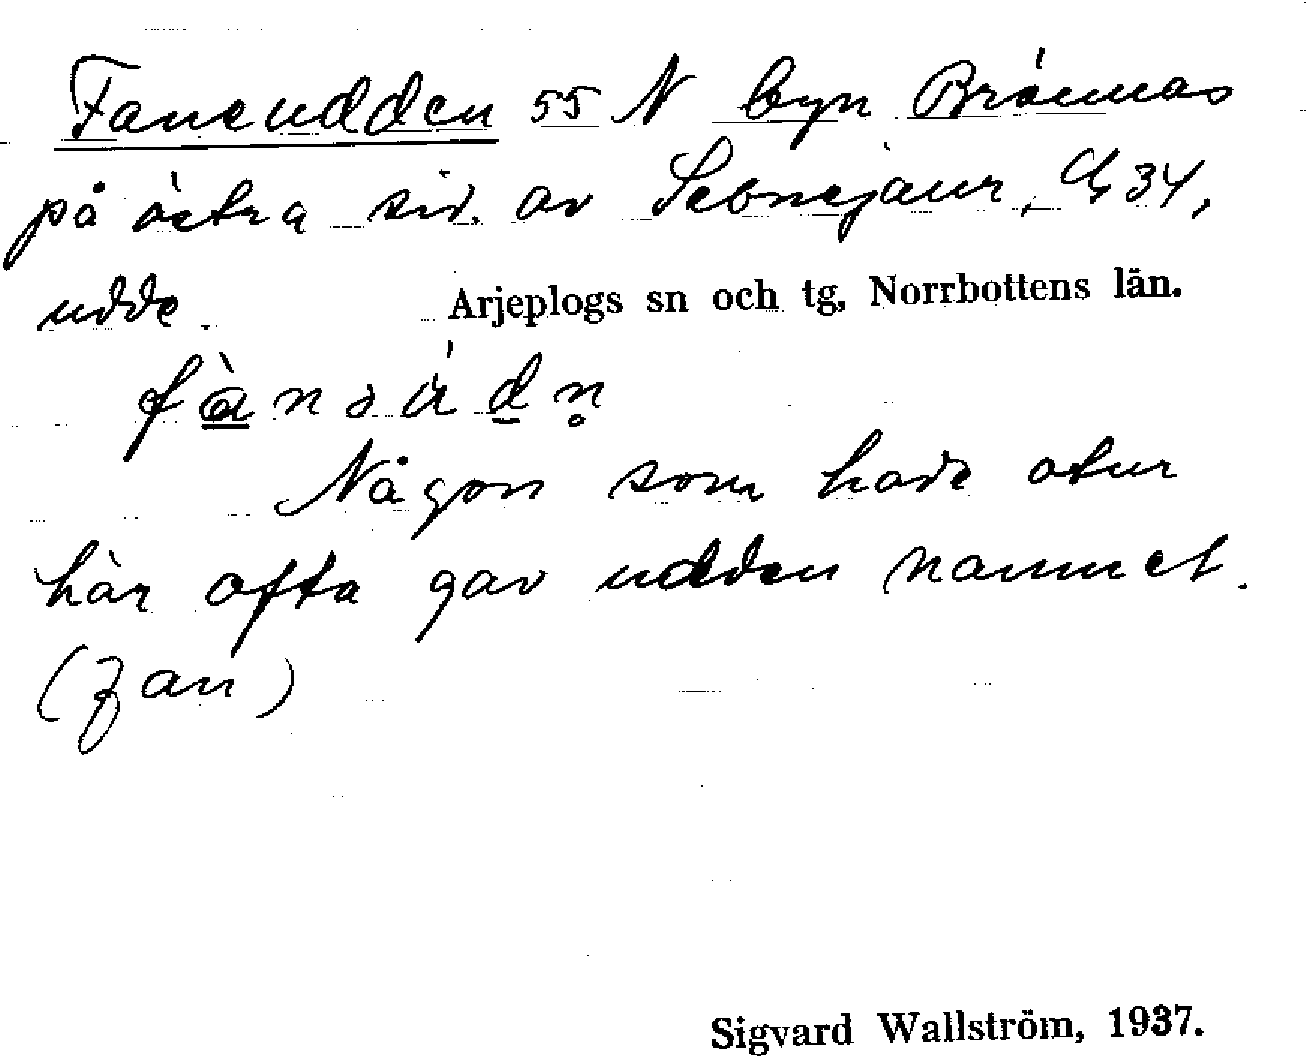 Faneudden 55 N byn Brännäs
på östra sid. av Sebnejaur, G 34,
udde. Arjeplogs sn och tg, Norrbottens län.
Någon som hade otur
här ofta gav udden namnet.
(fan)
Sigvard Wallström, 1937.